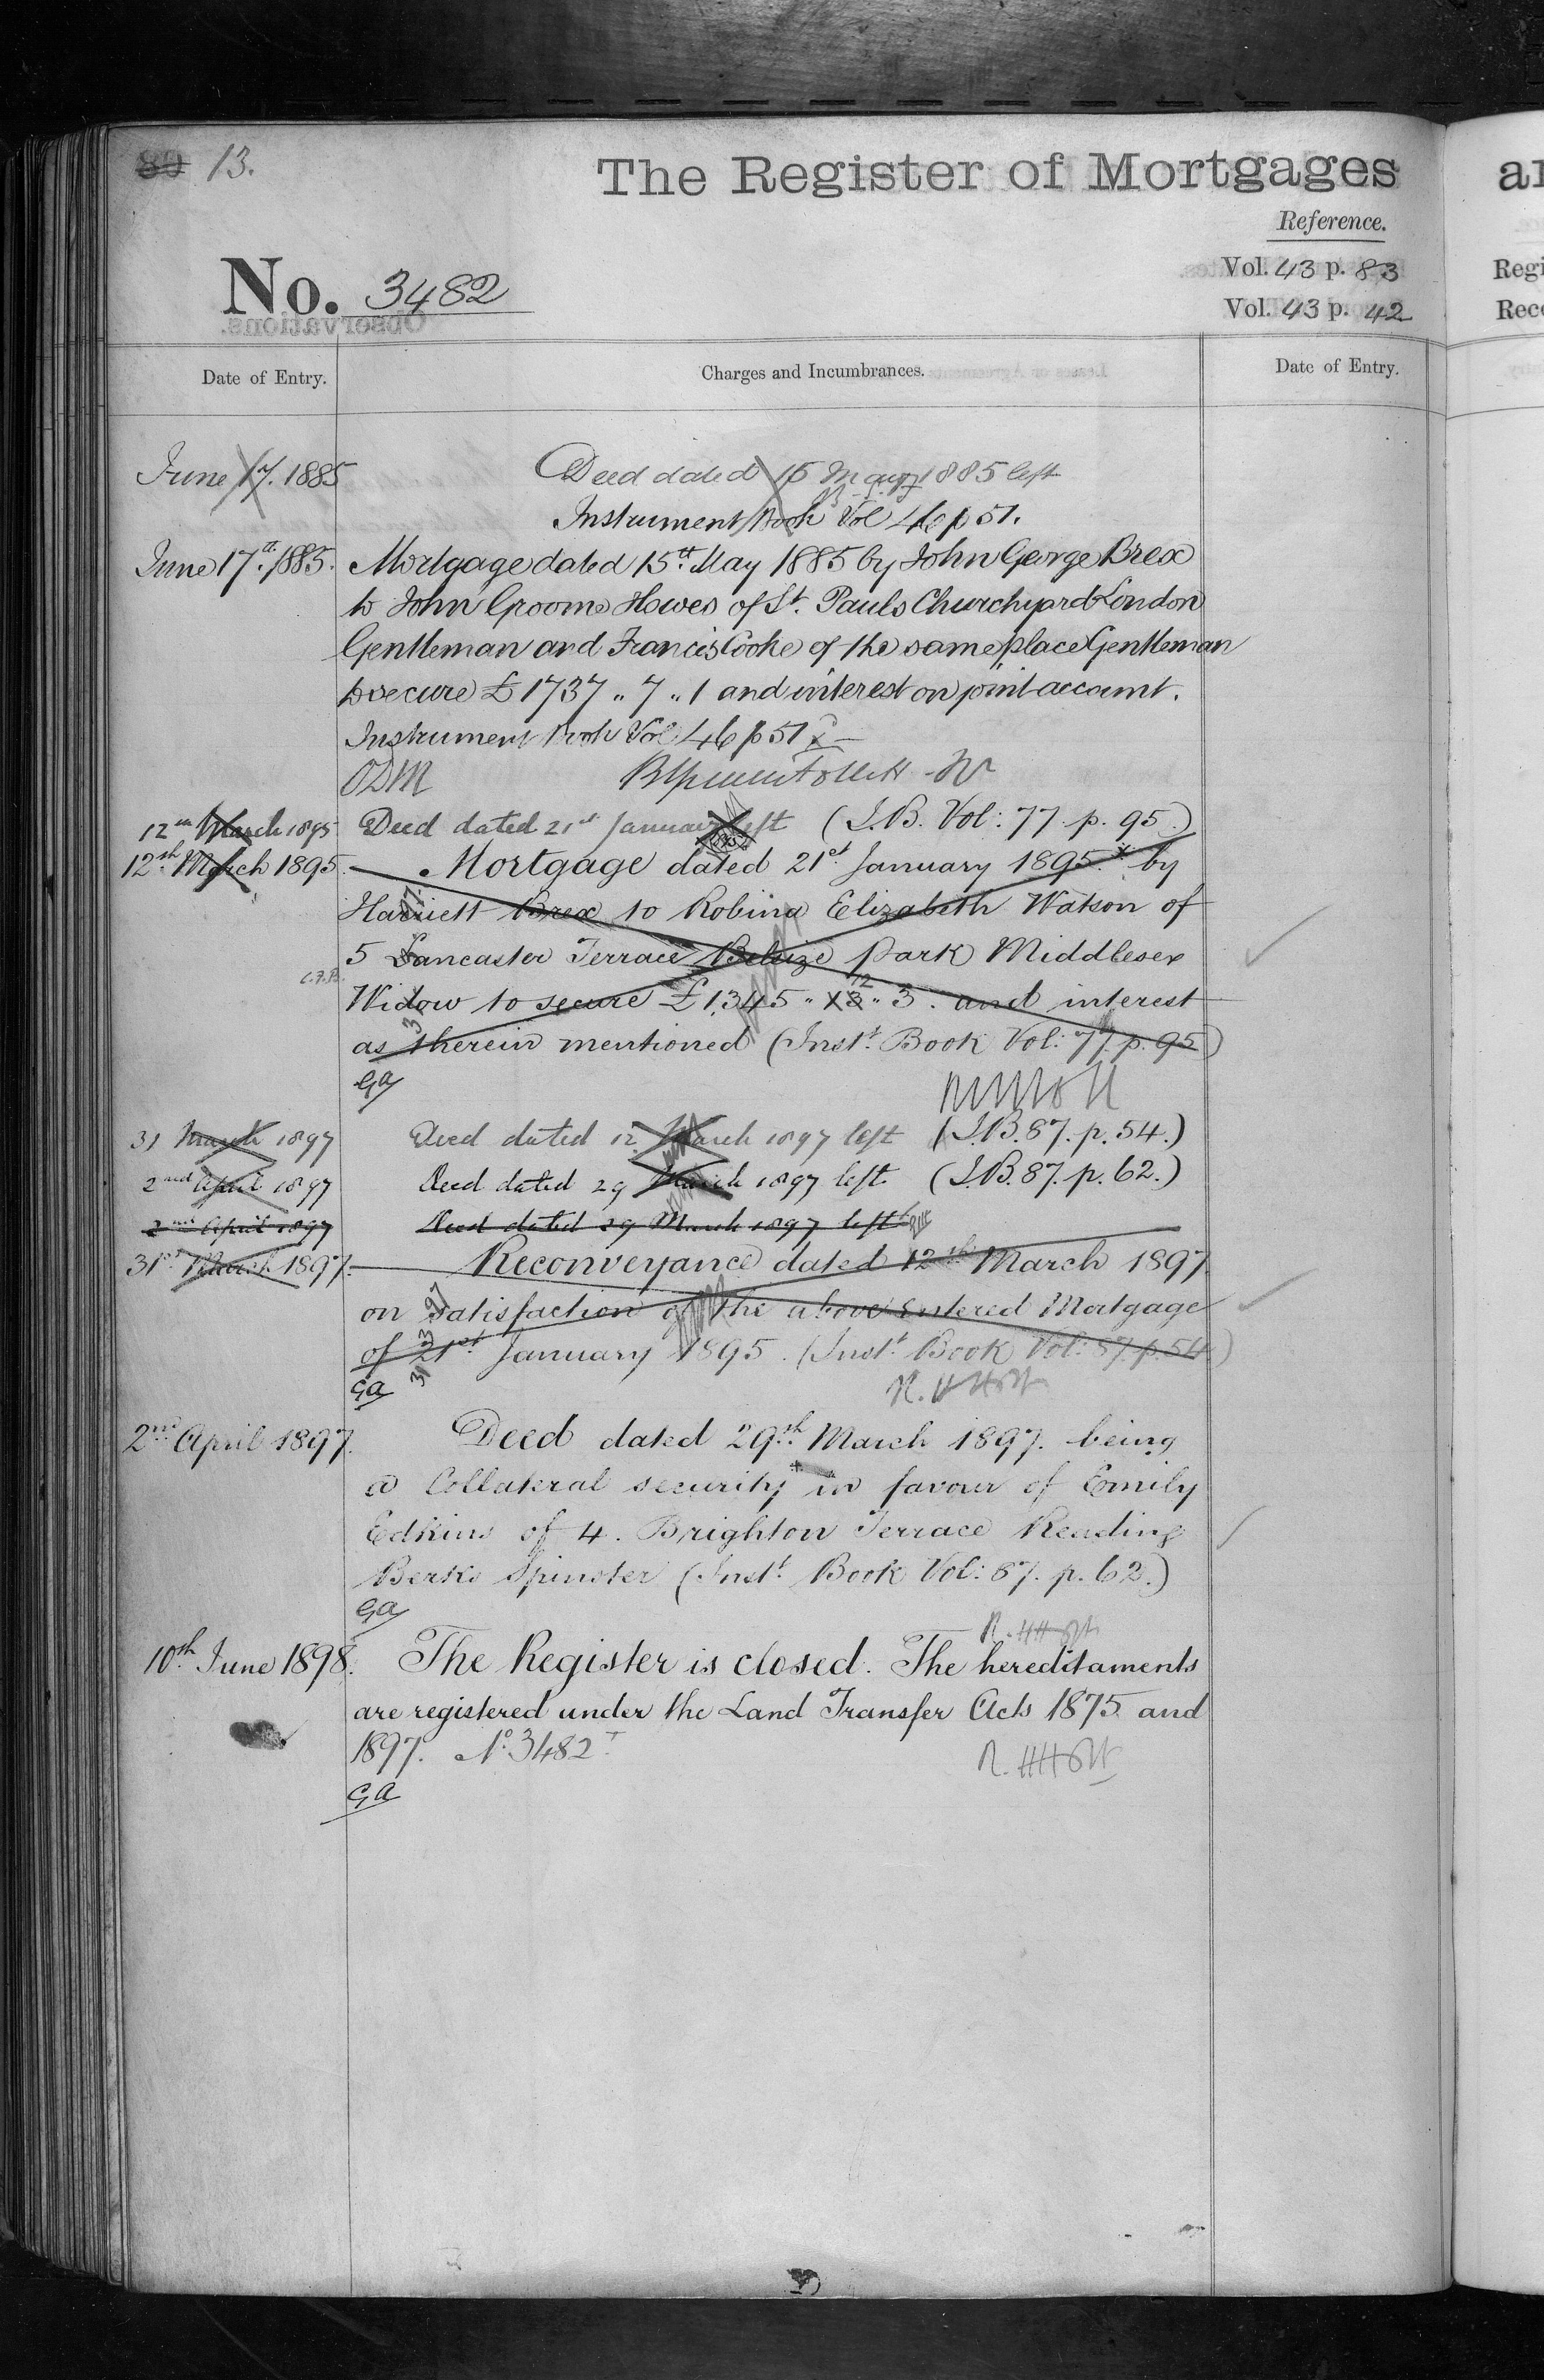 80 13.
The Register of Mortgages
Reference.
No. 3482
Vol. 43 p. 83
Vol. 43 p. 42
Date of Entry.
Charges and Incumbrances.
Date of Entry.
June 17. 1885 Deed dated 15 May 1885 left
Instrument Book Vol 46 p 51.
June 17th 1885. Mortgage dated 15th May 1885 by John George Brex
to John Grooms Howes of St. Pauls Churchyard London
Gentleman and Francis Cooke of the same place Gentleman
to secure £1737 " 7 " 1 and interest on joint account.
Instrument Book Vol 46 p 51
ODM
12th March 1895 Deed dated 21st January left (I.B. Vol: 77. p. 95.)
12th March 1895. Mortgage dated 21st January 1895 x by
Harriett Brex to Robina Elizabeth Watson of
5 Lancaster Terrace Belsize Park Middlesex
Widow to secure £1,345 " 13 12 " 3. and interest
as therein mentioned (Inst. Book Vol: 77. p. 95)
GA
31 March 1897 Deed dated 12 March 1897 left (I.B. 87. p. 54.)
2nd April 1897 Deed dated 29 March 1897 left (I.B. 87. p. 62.)
2nd April 1897 Deed dated 29 March 1897 left
31st March 1897. Reconveyance dated 12th March 1897
on satisfaction of the above entered Mortgage
of 21st January 1895. (Inst. Book Vol: 87. p. 54.)
GA
R. H Holt
2nd April 1897. Deed dated 29th March 1897. being
a Collateral security + in favour of Emily
Edkins of 4. Brighton Terrace Reading
Berks Spinster (Inst. Book Vol: 87. p. 62.)
GA
R. H Holt
10th June 1898. The Register is closed. The hereditaments
are registered under the Land Transfer Acts 1875 and
1897. No. 3482 T
R. H Holt
GA
ar
Regi
Rece